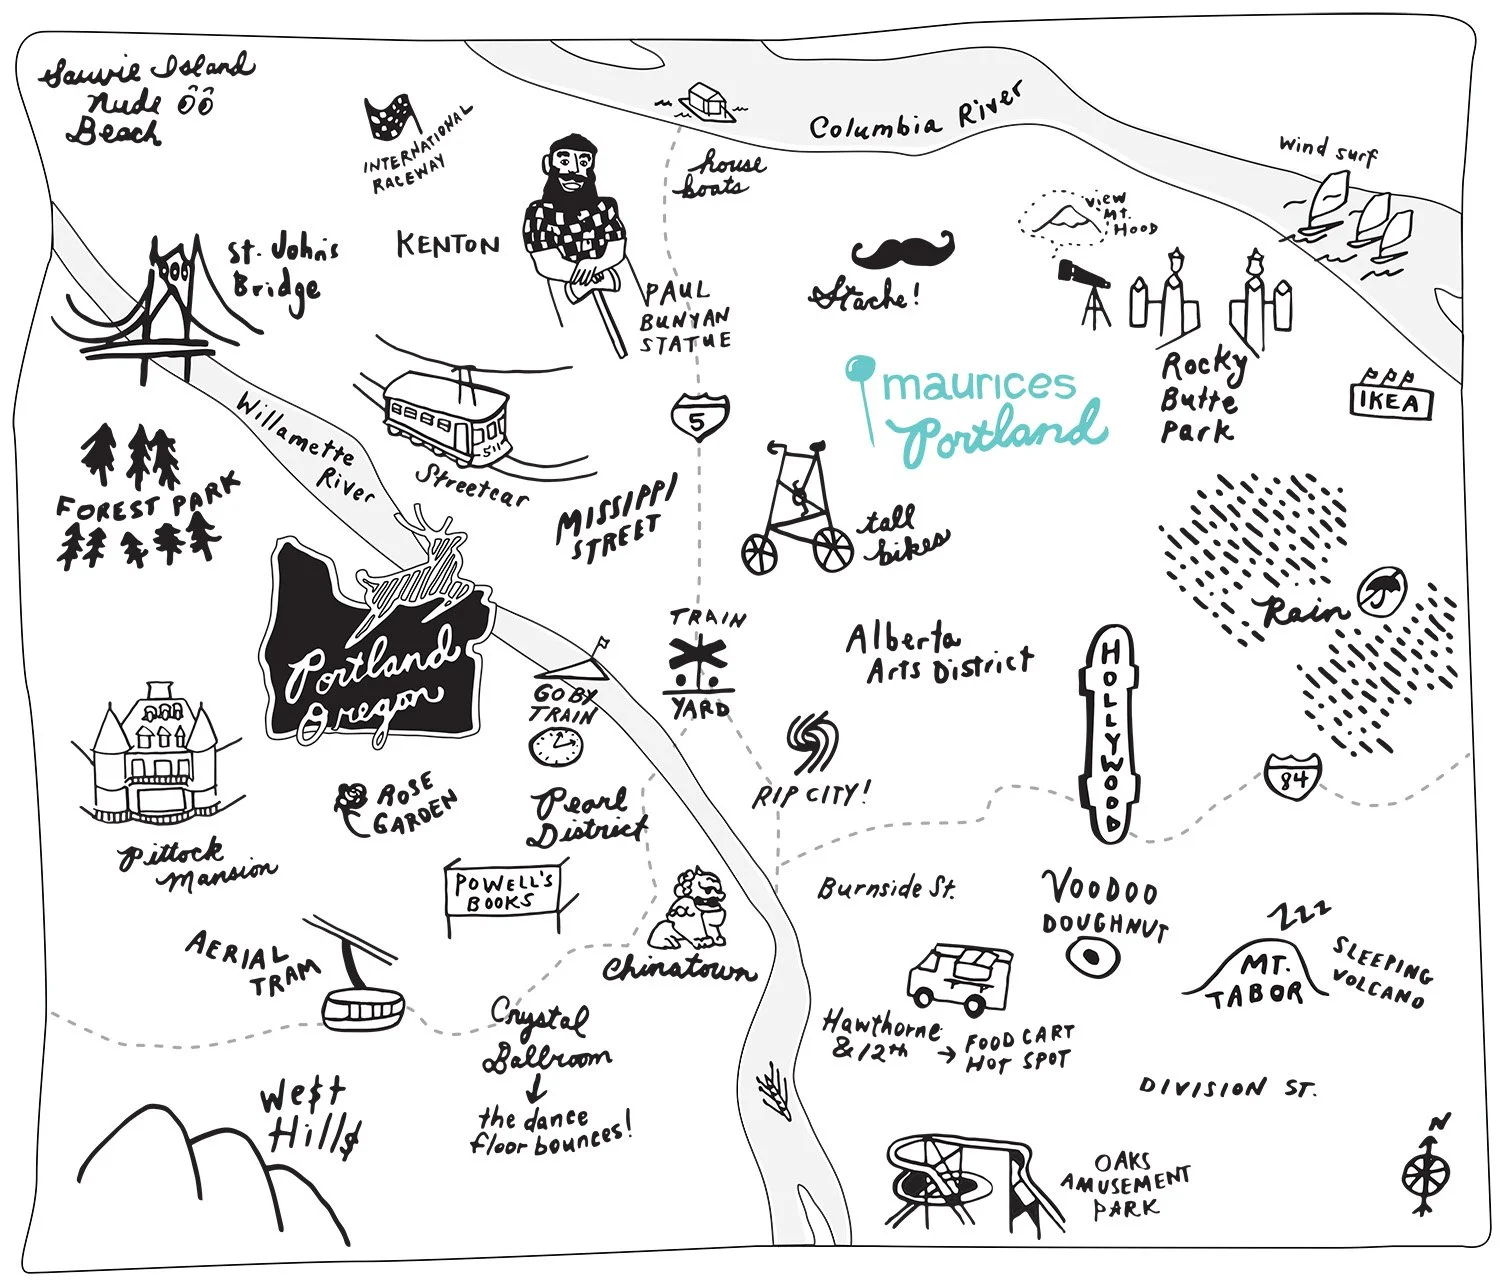 Sauvie Island
Nude
Beach
INTERNATIONAL
RACEWAY
house
boats
Columbia River
wind surf
view
Mt.
Hood
St. John's
Bridge
KENTON
PAUL
BUNYAN
STATUE
Stache!
maurices
Portland
Rocky
Butte
Park
IKEA
Willamette
River
511
Streetcar
5
MISSIPPI
STREET
tall
bikes
FOREST PARK
Rain
Portland
Oregon
GO BY
TRAIN
TRAIN
YARD
Alberta
Arts District
HOLLYWOOD
RIP CITY!
84
Pittock
Mansion
ROSE
GARDEN
Pearl
District
POWELL'S
BOOKS
Chinatown
Burnside St.
VOODOO
DOUGHNUT
ZZZ
SLEEPING
VOLCANO
MT.
TABOR
AERIAL
TRAM
Crystal
Ballroom
the dance
floor bounces!
Hawthorne
& 12th → FOOD CART
HOT SPOT
DIVISION ST.
We$t
Hill$
OAKS
AMUSEMENT
PARK
N